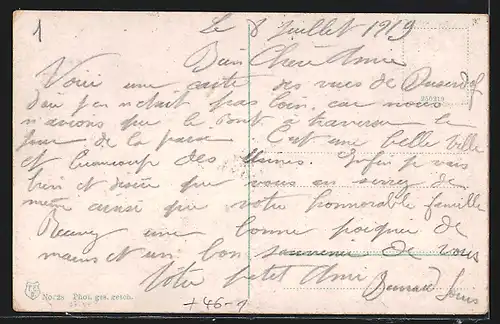 1
Le 8 Juillet 1919
Bien Chère Amie
Voici une carte des vues de Dusseldof
dou j'en n'etait pas loin car nous
n'avions que le Pont à traverser le
jour de la paix C'est une belle ville
et beaucoup des Usines. Enfin je vais
bien et désire que vous en serrez de
même ainsi que votre honnorable famille
Recevez une bonne poignée de
mains et un bon souvenir de vous
Votre petit Ami
Louis
230919
No. 28 Phot. ges. gesch.
+46-1